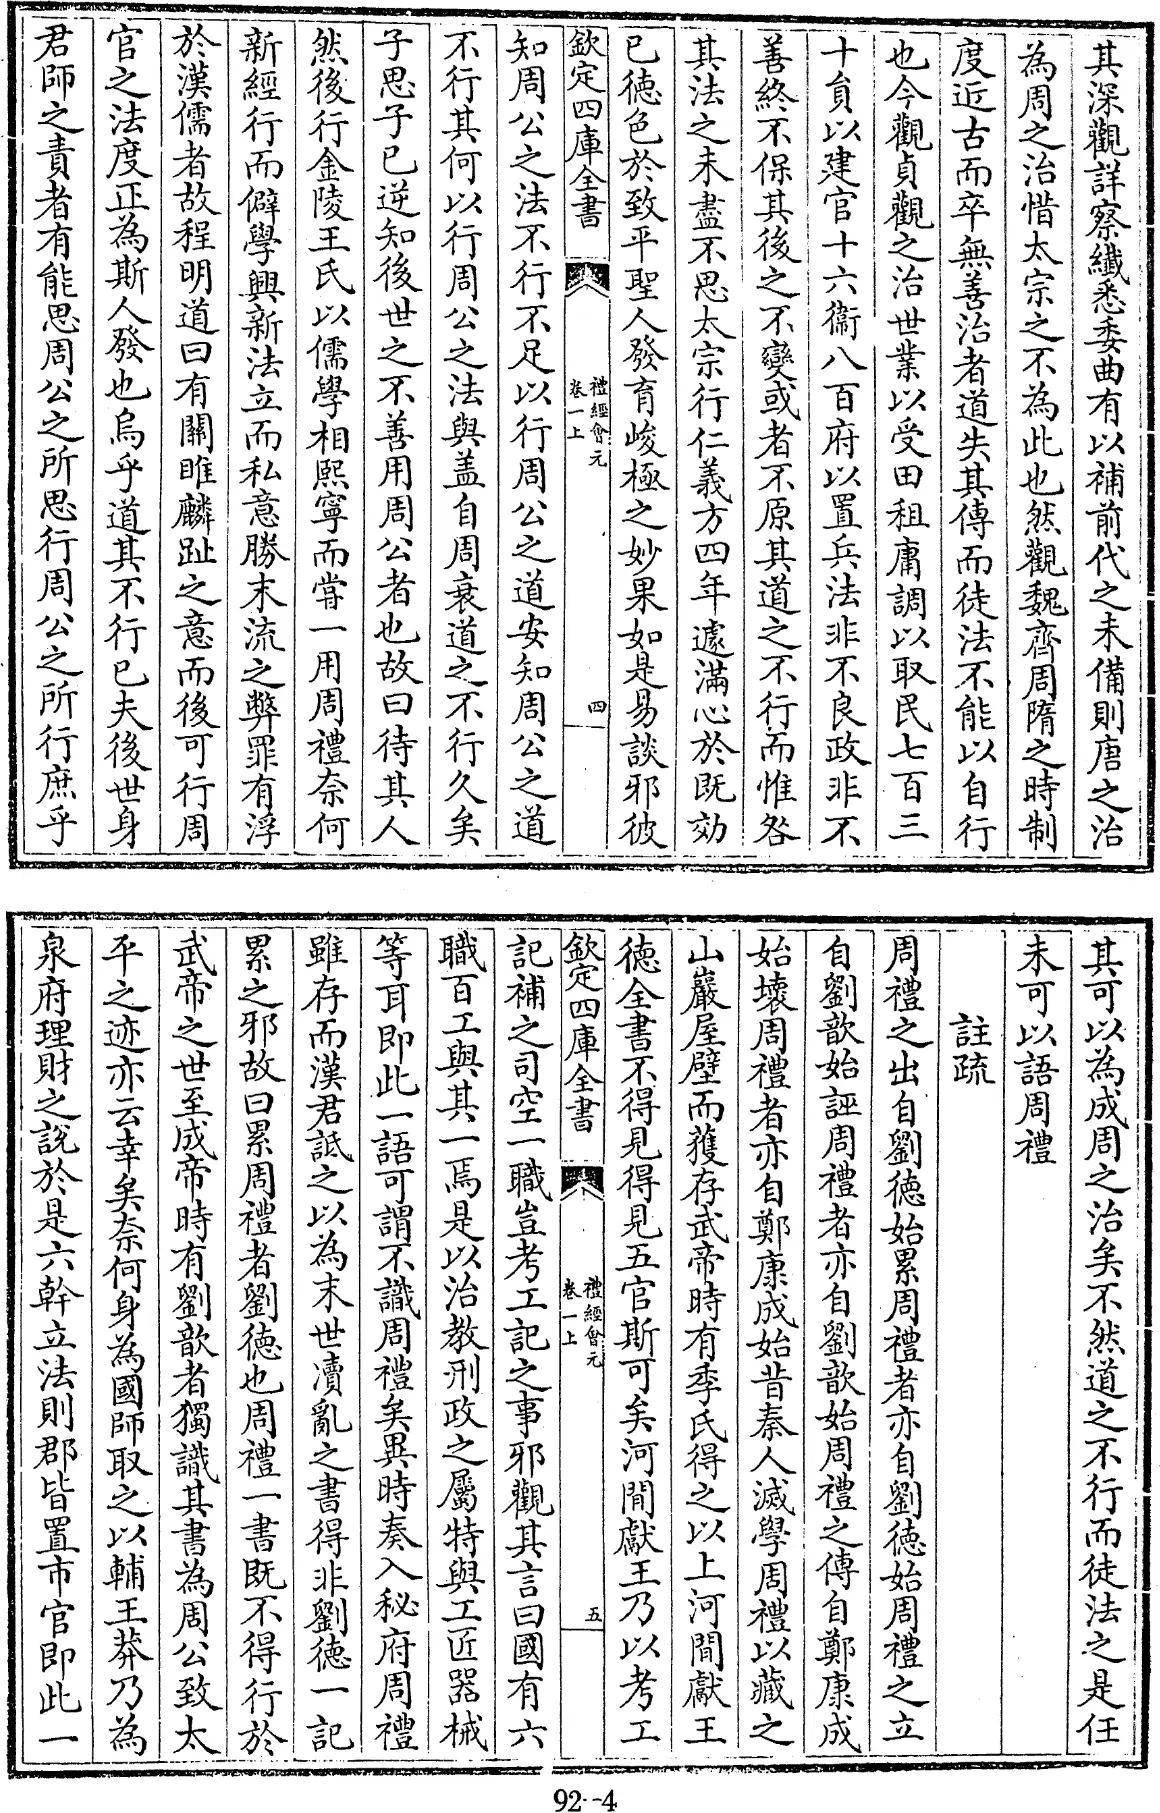 其深觀詳察纖悉委曲有以補前代之未備則唐之治
為周之治惜太宗之不為此也然觀魏齊周隋之時制
度近古而卒無善治者道失其傳而徒法不能以自行
也今觀貞觀之治世業以受田租庸調以取民七百三
十員以建官十六衞八百府以置兵法非不良政非不
善終不保其後之不變或者不原其道之不行而惟咎
其法之未盡不思太宗行仁義方四年遽滿心於既効
已德色於致平聖人發育峻極之妙果如是易談邪彼
欽定四庫全書
禮經會元
卷一上
四
知周公之法不行不足以行周公之道安知周公之道
不行其何以行周公之法與蓋自周衰道之不行久矣
子思子已逆知後世之不善用周公者也故曰待其人
然後行金陵王氏以儒學相熙寧而嘗一用周禮奈何
新經行而僻學興新法立而私意勝末流之弊罪有浮
於漢儒者故程明道曰有關雎麟趾之意而後可行周
官之法度正為斯人發也烏乎道其不行已夫後世身
君師之責者有能思周公之所思行周公之所行庶乎
其可以為成周之治矣不然道之不行而徒法之是任
未可以語周禮
註疏
周禮之出自劉德始累周禮者亦自劉德始周禮之立
自劉歆始誣周禮者亦自劉歆始周禮之傳自鄭康成
始壞周禮者亦自鄭康成始昔秦人滅學周禮以藏之
山巖屋壁而獲存武帝時有季氏得之以上河間獻王
德全書不得見得見五官斯可矣河間獻王乃以考工
欽定四庫全書
禮經會元
卷一上
五
記補之司空一職豈考工記之事邪觀其言曰國有六
職百工與其一焉是以治教刑政之屬特與工匠器械
等耳即此一語可謂不識周禮矣異時奏入秘府周禮
雖存而漢君詆之以為末世瀆亂之書得非劉德一記
累之邪故曰累周禮者劉德也周禮一書既不得行於
武帝之世至成帝時有劉歆者獨識其書為周公致太
平之迹亦云幸矣奈何身為國師取之以輔王莽乃為
泉府理財之說於是六幹立法則郡皆置市官即此一
92--4